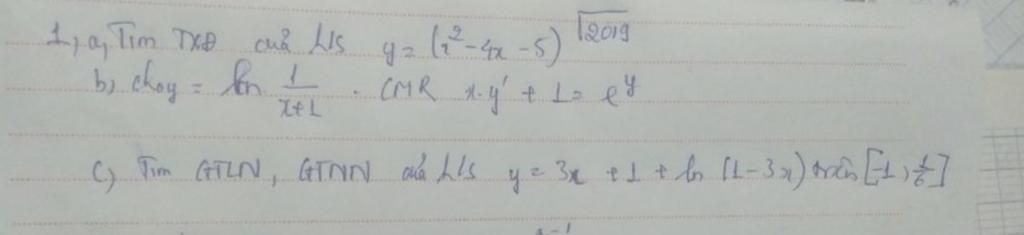 1, a, Tìm TXĐ của h/s y = (x² - 4x - 5)^√2019
b, cho y = ln 1/(x+1) . CMR x.y' + 1 = e^y
c, Tìm GTLN, GTNN của h/s y = 3x + 1 + ln (1-3x) trên [-1, 1/6]